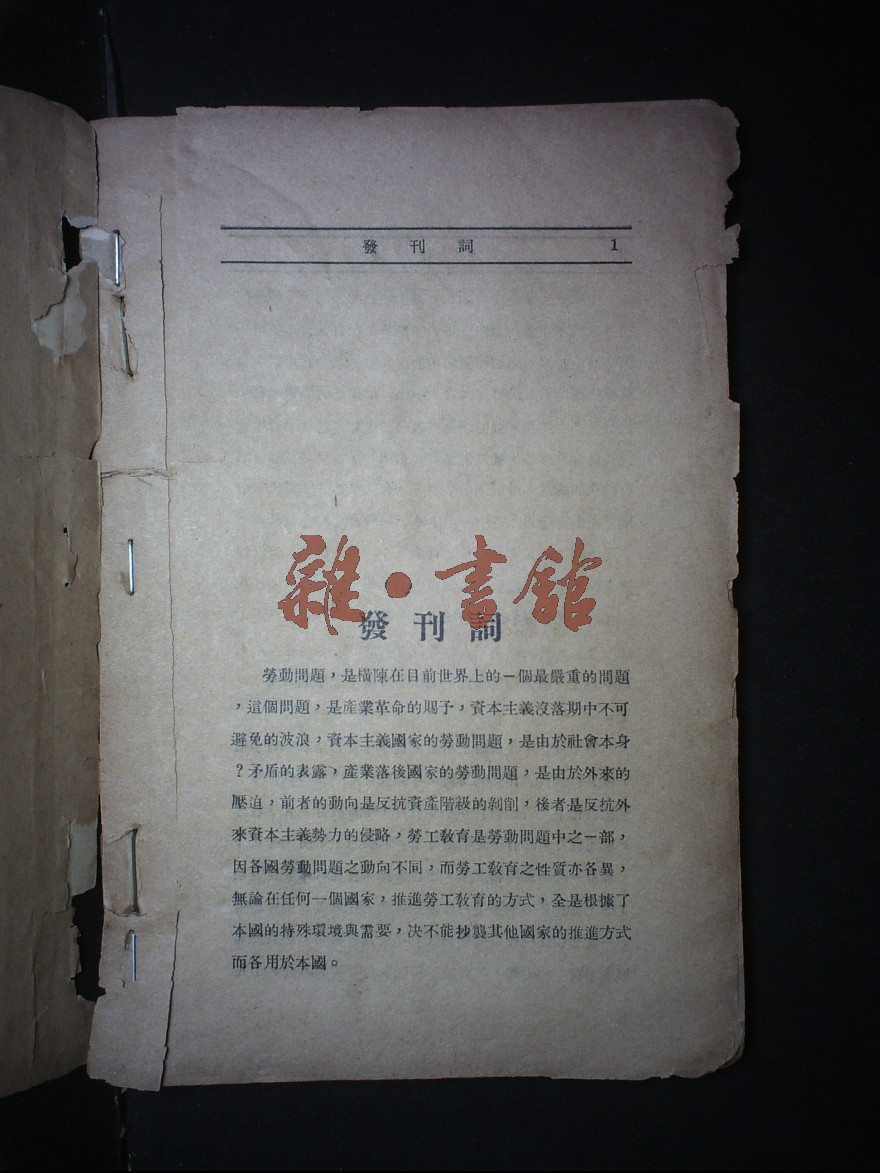 發刊詞 1
雜·書館
發刊詞
勞動問題，是橫陳在目前世界上的一個最嚴重的問題
，這個問題，是產業革命的賜予，資本主義沒落期中不可
避免的波浪，資本主義國家的勞動問題，是由於社會本身
？矛盾的表露，產業落後國家的勞動問題，是由於外來的
壓迫，前者的動向是反抗資產階級的剝削，後者是反抗外
來資本主義勢力的侵略，勞工教育是勞動問題中之一部，
因各國勞動問題之動向不同，而勞工教育之性質亦各異，
無論在任何一個國家，推進勞工教育的方式，全是根據了
本國的特殊環境與需要，决不能抄襲其他國家的推進方式
而各用於本國。